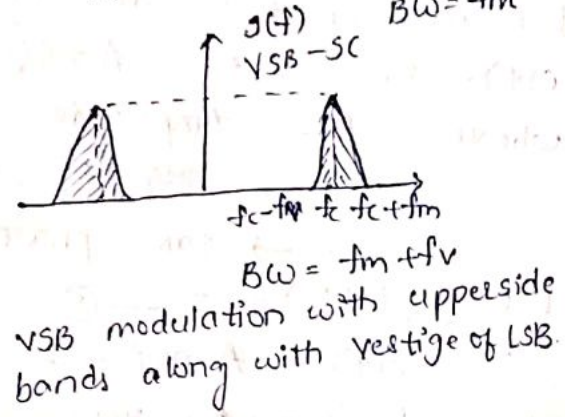 BW = fm
s(f)
VSB-SC
fc-fv fc fc+fm
BW = fm + fv
VSB modulation with upperside
bands along with vestige of LSB.